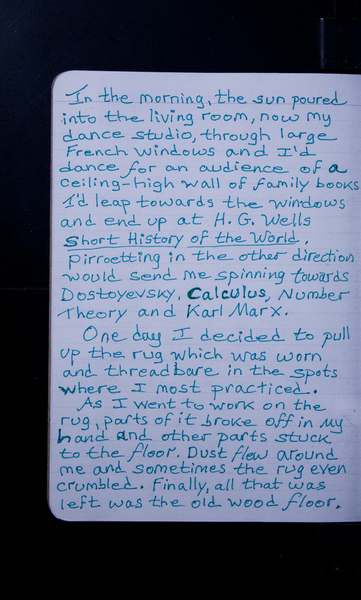 In the morning, the sun poured
into the living room, now my
dance studio, through large
French windows and I'd
dance for an audience of a
ceiling-high wall of family books
I'd leap towards the windows
and end up at H. G. Wells
Short History of the World.
Pirroetting in the other direction
would send me spinning towards
Dostoyevsky, Calculus, Number
Theory and Karl Marx.
One day I decided to pull
up the rug which was worn
and threadbare in the spots
where I most practiced.
As I went to work on the
rug, parts of it broke off in my
hand and other parts stuck
to the floor. Dust flew around
me and sometimes the rug even
crumbled. Finally, all that was
left was the old wood floor.